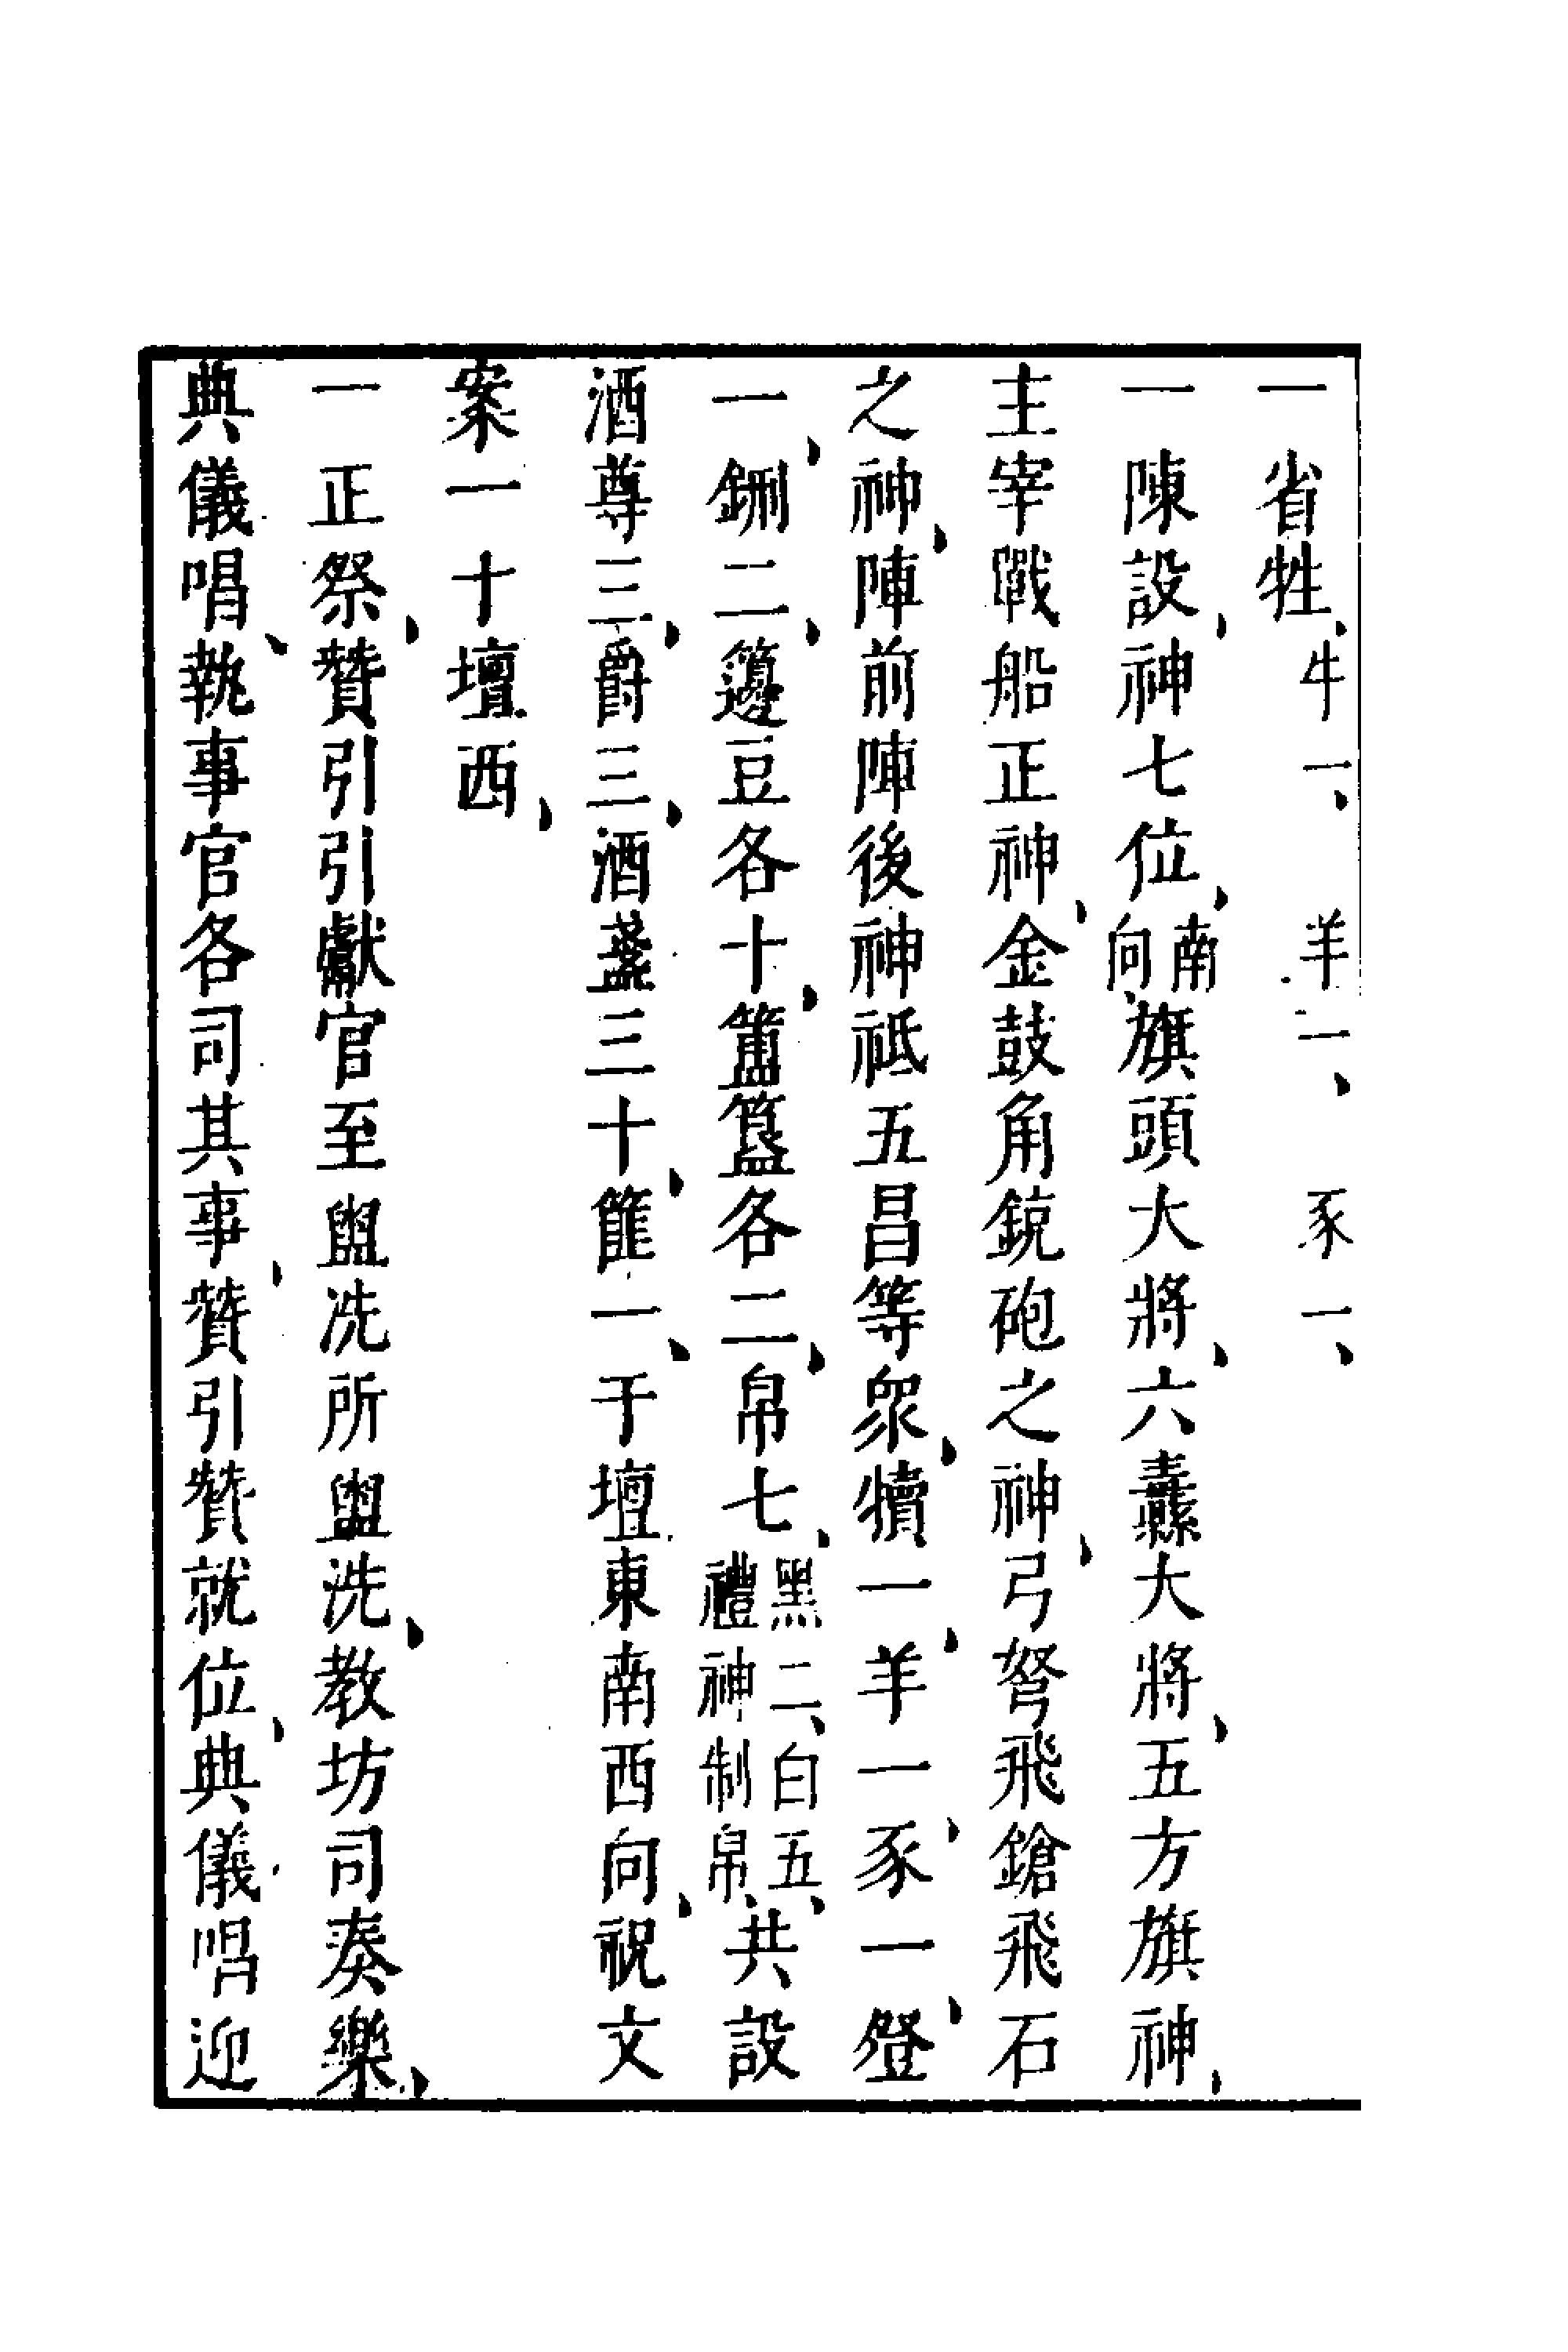 一省牲、牛一、羊一、豕一、
一陳設、神七位、南向、旗頭大將、六纛大將、五方旗神、
主宰戰船正神、金鼓角銃砲之神、弓弩飛鎗飛石
之神、陣前陣後神祇五昌等衆、犢一、羊一、豕一、登
一、鉶二、籩豆各十、簠簋各二、帛七、黑二、白五、禮神制帛、共設
酒尊三、爵三、酒盞三十、篚一、于壇東南西向、祝文
案一十壇西、
一正祭、贊引引獻官至盥洗所盥洗、教坊司奏樂、
典儀唱、執事官各司其事、贊引贊就位、典儀唱迎